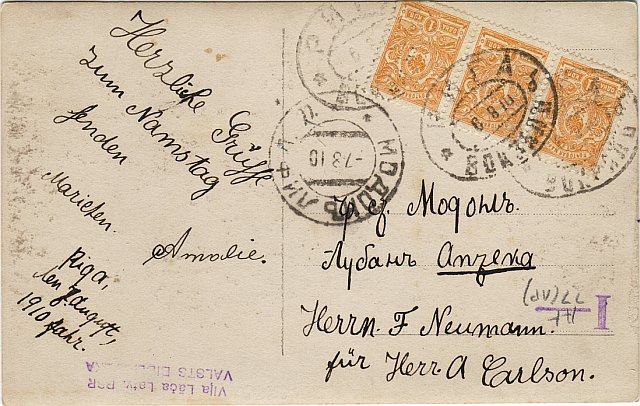 Herzliche Grüsse
zum Namstag
senden
Mariechen.
Amalie.
Riga,
den 7 August,
1910 Jahr.
чрез. Модонъ.
Лубанъ Anzena
Herrn. F Neumann.
für Herr. A Carlson.
МОДОНЪ ЛИФЛ.
-7.8.10
РИГА
ВОКЗАЛЪ
I
77 (AP)
Vija Lāča Latv. PSR
VALSTS